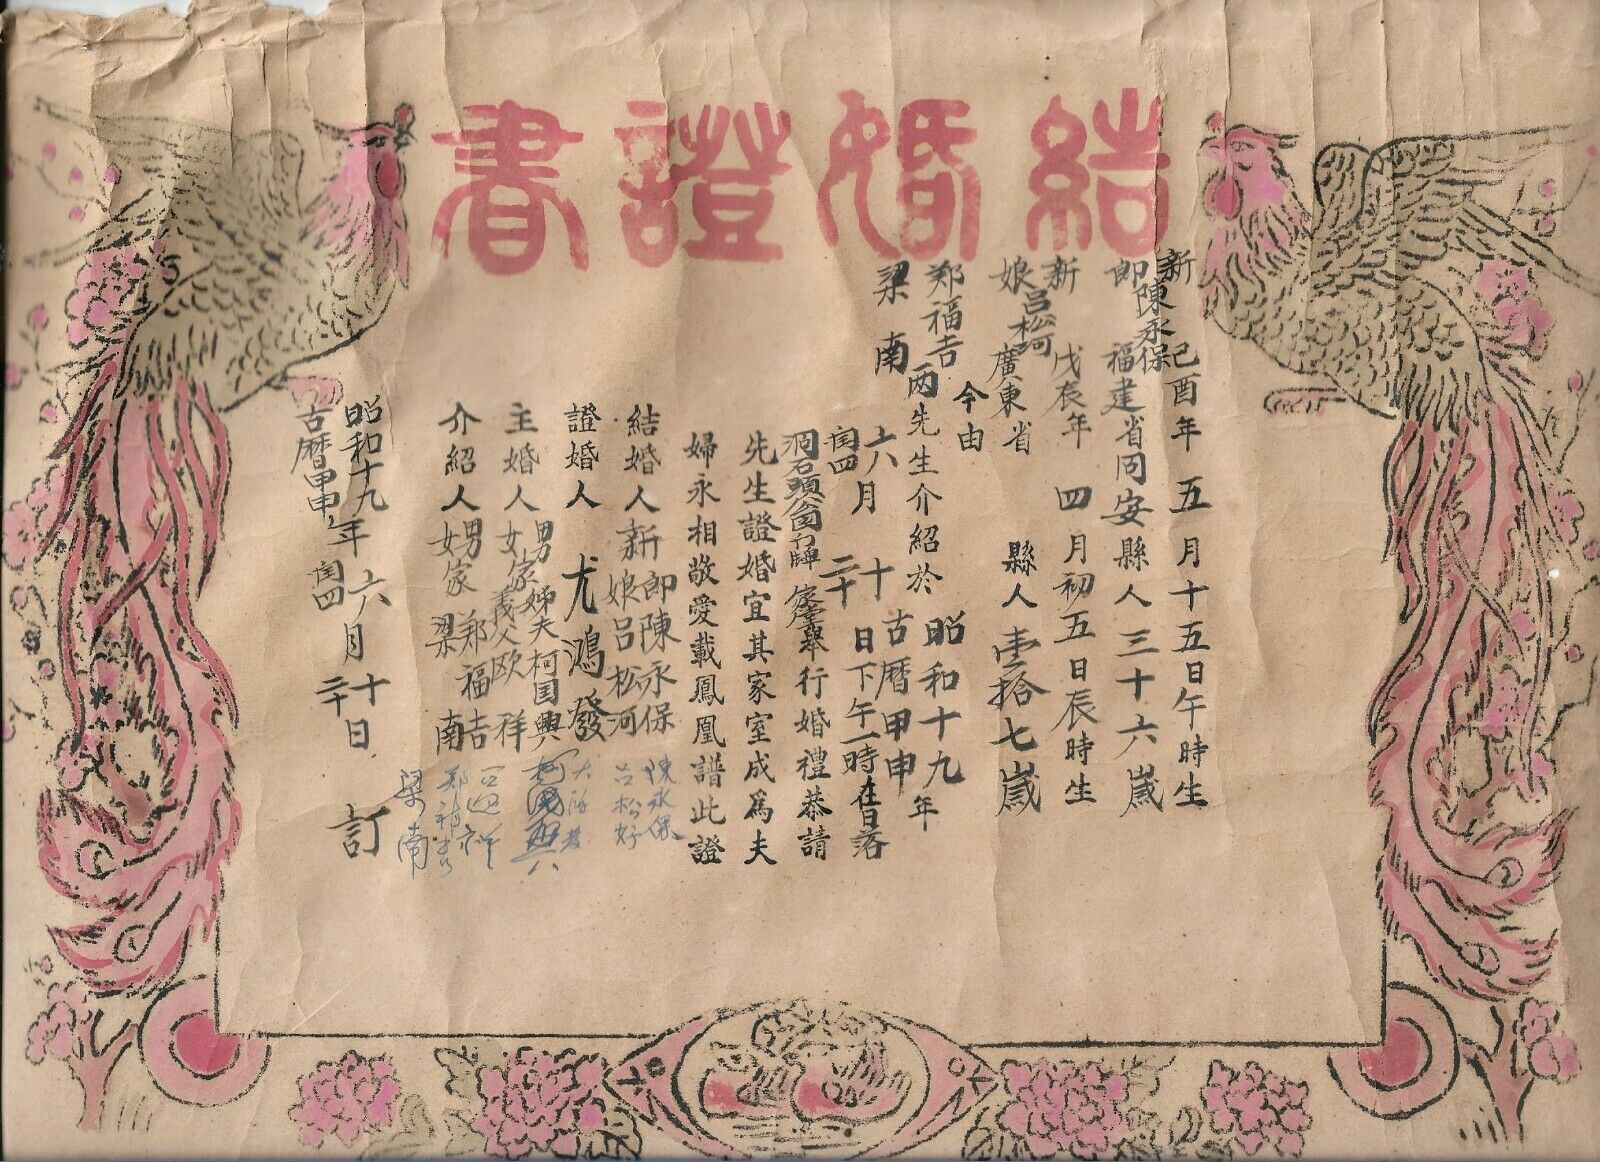 結婚證書
新郎陳永保己酉年五月十五日午時生
福建省同安縣人三十六歲
新娘呂松河戊辰年四月初五日辰時生
廣東省縣人壹拾七歲
今由
鄭福吉
梁南
两先生介紹於昭和十九年
古曆甲申
六月十日下午一時在日落
閏四二十
洞石頭舉行婚禮恭請
先生證婚宜其家室成爲夫
婦永相敬愛載鳳凰譜此證
結婚人新郎陳永保
娘呂松河
證婚人尤鴻發
主婚人男家姊夫柯国興
女家義父欧祥
介紹人男家鄭福吉
女家梁南
昭和十九年六月十日訂
古曆甲申閏四二十
陳永保
呂松好
柯國興
鄭福吉
梁南